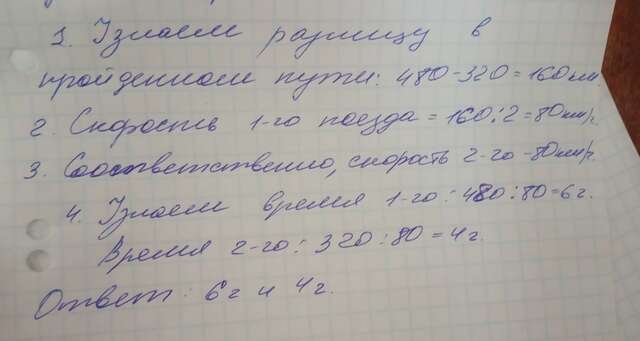 1. Узнаем разницу в
пройденном пути: 480-320=160км.
2. Скорость 1-го поезда = 160:2=80км/ч.
3. Соответственно, скорость 2-го -80км/ч.
4. Узнаем время 1-го: 480:80=6ч.
Время 2-го: 320:80=4ч.
Ответ: 6ч и 4ч.